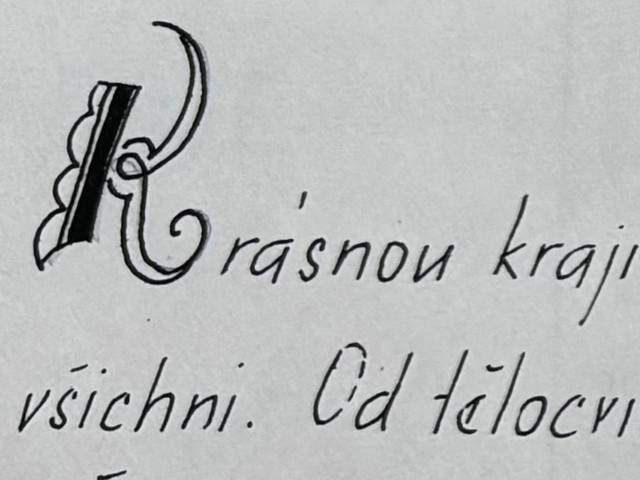 Krásnou kraji
všichni. Od tělocvi